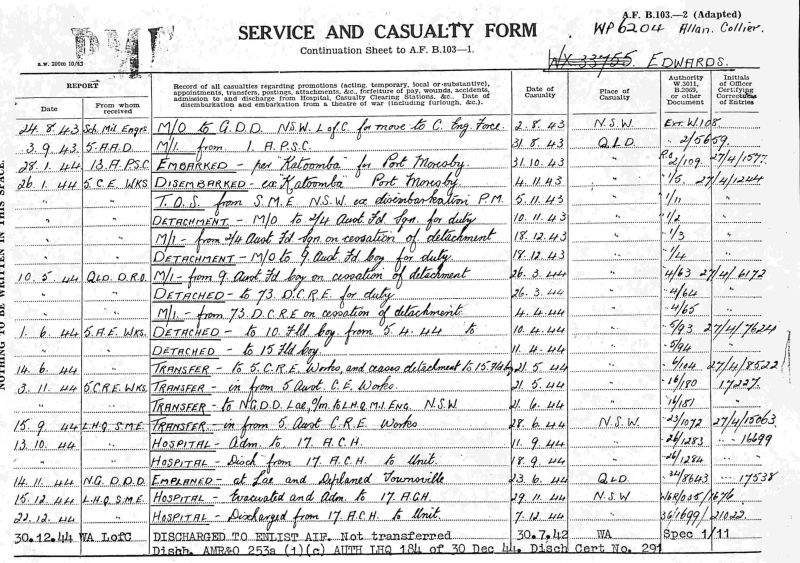 A.F. B.103.—2 (Adapted)
SERVICE AND CASUALTY FORM
WP6204 Allan. Collier.
Continuation Sheet to A.F. B.103—1.
A.W. 200m 10/43
WX 33755 EDWARDS.
REPORT
Record of all casualties regarding promotions (acting, temporary, local or substantive), appointments, transfers, postings, attachments, &c., forfeiture of pay, wounds, accidents, admission to and discharge from Hospital, Casualty Clearing Stations, &c. Date of disembarkation and embarkation from a theatre of war (including furlough, &c.).
Date of Casualty
Place of Casualty
Authority W.3011, B.2069, or other Document
Initials of Officer Certifying Correctness of Entries
Date
From whom received
24.8.43 Sch. Mil Engrs M/O to G.D.D. N.S.W. L of C. for move to C. Eng. Force 2.8.43 N.S.W. Ext. W.108
3.9.43 5.A.A.D. M/I from 1. A.P.S.C. 31.8.43 QLD. 2/5659.
28.1.44 13.A.P.S.C EMBARKED - per "Katoomba" for Port Moresby 31.10.43 " 2/109. 27/4/1577.
26.1.44 5.C.E. WKS DISEMBARKED - ex "Katoomba" Port Moresby. 4.11.43 " 1/5. 27/4/1244
" " T.O.S. from S.M.E N.S.W. ex disembarkation P.M. 5.11.43 " 1/11
" " DETACHMENT - M/O to 2/4 Aust Fd Sqn. for duty 10.11.43 " 1/2
" " M/I - from 2/4 Aust Fd Sqn on cessation of detachment 18.12.43 " 1/3
" " DETACHMENT - M/O to 9 Aust Fd Coy. for duty 18.12.43 " 1/4
10.5.44 QLD. D.R.O. M/I - from 9 Aust Fd Coy on cessation of detachment 26.3.44 " 4/63 27/4/6172
" " DETACHED - to 73 D.C.R.E. for duty 26.3.44 " 4/64
" " M/I. - from 73 D.C.R.E on cessation of detachment. 4.4.44 " 4/65
1.6.44 5.A.E. WKS. DETACHED - to 10 Fld Coy from 5.4.44 to 10.4.44 " 5/93 27/4/7624
" " DETACHED - to 15 Fld Coy 11.4.44 " 5/94
14.6.44 " TRANSFER - to 5.C.R.E. Works, and ceases detachment to 15 Fld Coy 21.5.44 " 6/104 27/4/8522
3.11.44 5.C.R.E. WKS. TRANSFER - in from 5 Aust C.E. Works. 21.5.44 " 16/180 17227.
" " TRANSFER - to N.G.D.D. Lae, O/M. to L.H.Q. M.I. ENG. N.S.W. 21.6.44 " 16/181
15.9.44 L.H.Q. S.M.E. TRANSFER - in from 5 Aust C.R.E. Works 28.6.44 N.S.W. 23/1072 27/4/15063.
13.10.44 " HOSPITAL - Adm. to 17 A.C.H. 11.9.44 " 26/1283 " 16699
" " HOSPITAL - Disch from 17 A.C.H to Unit. 18.9.44 " 26/1284
14.11.44 N.G. D.D.D. EMPLANED - at Lae and Deplaned Townsville 23.6.44 QLD 34/8643 " 17538
15.12.44 L.H.Q. S.M.E. HOSPITAL - Evacuated and Adm. to 17. AGH. 29.11.44 N.S.W
22.12.44 " HOSPITAL - Discharged from 17. A.C.H to Unit. 7.12.44 " 36/1699/21022.
30.12.44 WA LofC DISCHARGED TO ENLIST AIF. Not transferred 30.7.42 WA Spec 1/11
Dishh. AMR&O 253a (1)(c) AUTH LHQ 184 of 30 Dec 44. Disch Cert No. 291
NOTHING TO BE WRITTEN IN THIS SPACE.